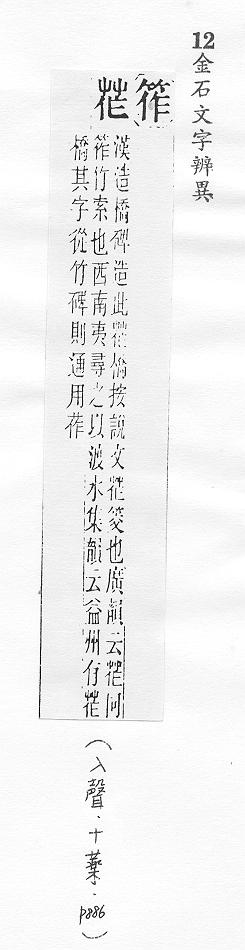 12金石文字辨異
筰
莋
漢造橋碑造此莋橋按說文莋筊也廣韻云莋同
筰竹索也西南夷尋之以波水集韻云益州有莋
橋其字從竹碑則通用莋
(入聲.十藥.p886)